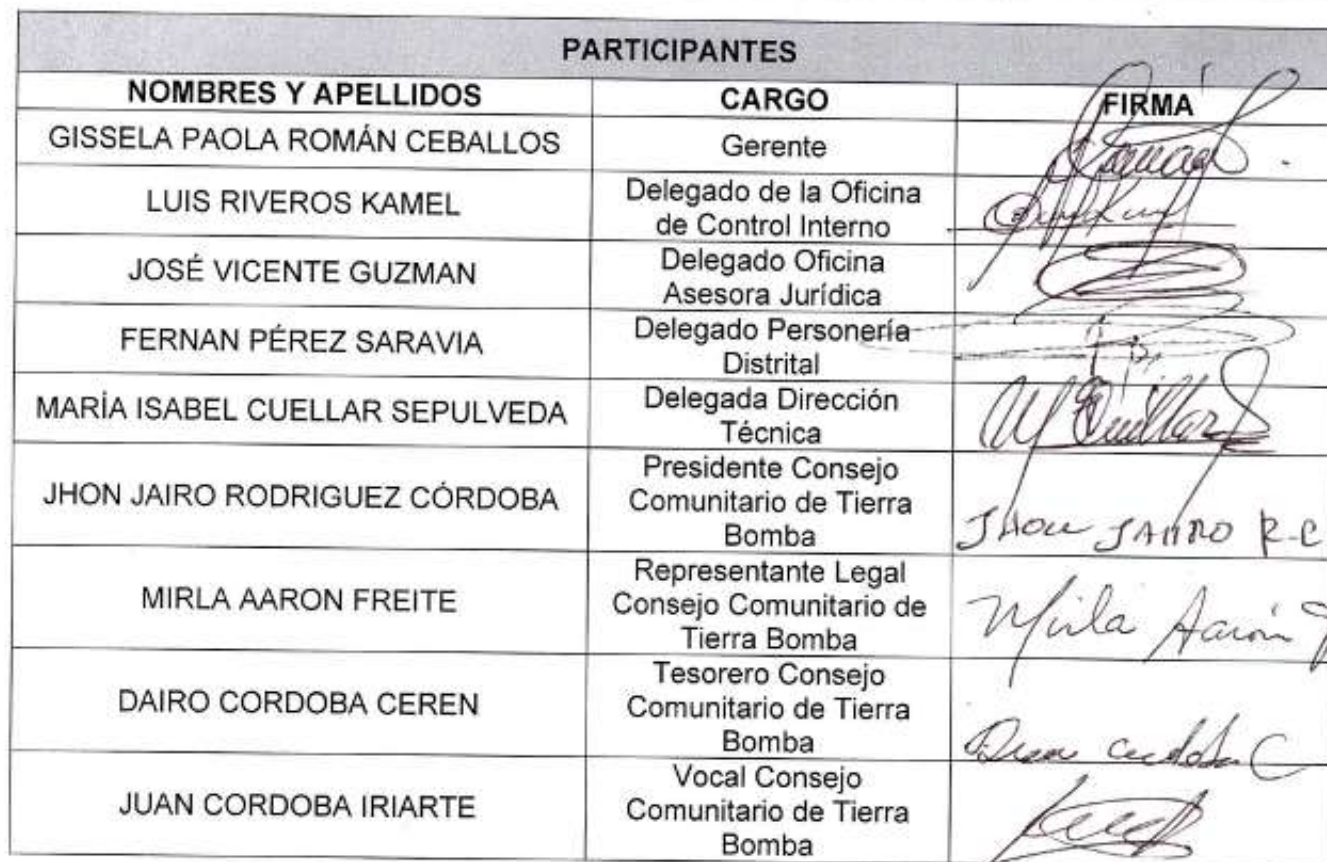 PARTICIPANTES
NOMBRES Y APELLIDOS CARGO FIRMA
GISSELA PAOLA ROMÁN CEBALLOS Gerente
LUIS RIVEROS KAMEL Delegado de la Oficina
de Control Interno
JOSÉ VICENTE GUZMAN Delegado Oficina
Asesora Jurídica
FERNAN PÉREZ SARAVIA Delegado Personería
Distrital
MARÍA ISABEL CUELLAR SEPULVEDA Delegada Dirección
Técnica
JHON JAIRO RODRIGUEZ CÓRDOBA Presidente Consejo
Comunitario de Tierra
Bomba
JHON JAIRO R.C
MIRLA AARON FREITE Representante Legal
Consejo Comunitario de
Tierra Bomba
Mirla Aarón
DAIRO CORDOBA CEREN Tesorero Consejo
Comunitario de Tierra
Bomba
JUAN CORDOBA IRIARTE Vocal Consejo
Comunitario de Tierra
Bomba